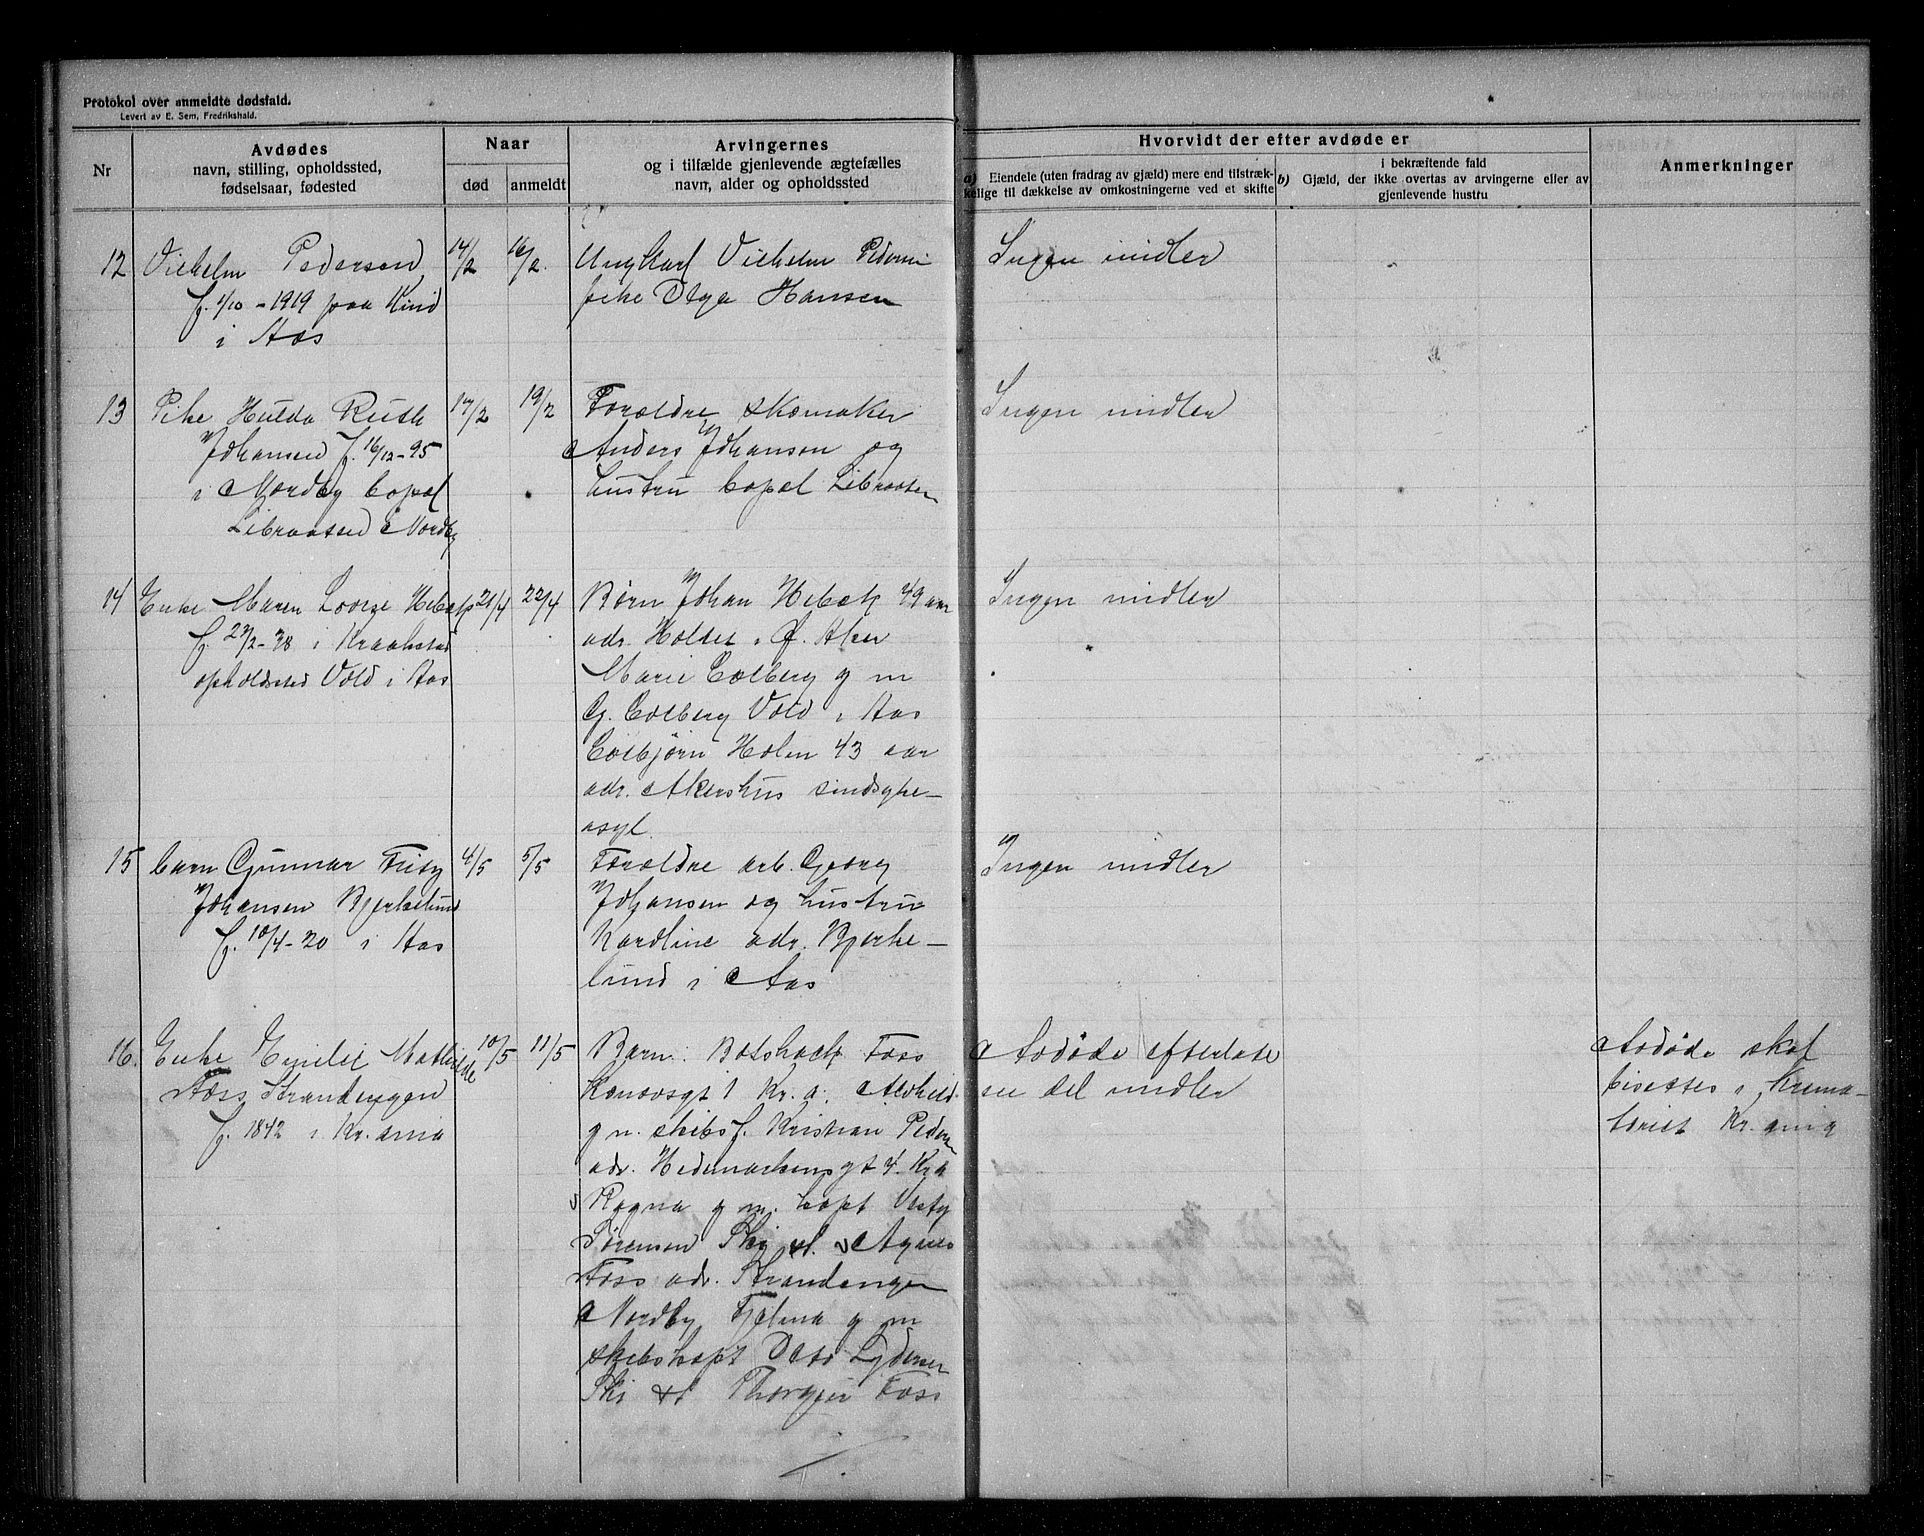 Protokol over anmeldte dødsfald.
Levert av E. Sem, Fredrikshald.
Nr
Avdødes
navn, stilling, opholdssted,
fødselsaar, fødested
Naar
død
anmeldt
Arvingernes
og i tilfælde gjenlevende ægtefælles
navn, alder og opholdssted
Hvorvidt der efter avdøde er
a) Eiendele (uten fradrag av gjæld) mere end tilstræk-
kelige til dækkelse av omkostningerne ved et skifte
i bekræftende fald
b) Gjæld, der ikke overtas av arvingerne eller av
gjenlevende hustru
Anmerkninger
12
Vilhelm Pedersen
f. 1/10 - 1919 paa Kind
i Aas
14/2
16/2.
Ungkarl Vilhelm Pedersen
pike Olga Hansen
Ingen midler
13
Pike Hulda Ruth
Johansen f. 16/12-95
i Nordby bopæl
Libraaten Nordby
17/2
19/2
Forældre skomaker
Anders Johansen og
hustru bopæl Libraaten
Ingen midler
14
Enke Maren Lovise Hebæk
f. 27/2-38 i Kraakstad
opholdssted Vold i Aas
21/4
22/4
Børn Johan Hebæk 49 aar
adr. Holtet i Ø. Aker
Marie Colberg g m
G. Colberg Vold i Aas
Colbjørn Holm 43 aar
adr. Akershus sindsyke-
asyl.
Ingen midler
15
barn Gunnar Frity
Johansen Bjerkelund
f. 10/4-20 i Aas
4/5
5/5
Forældre arb. Georg
Johansen og hustru
Karoline adr. Bjerke-
lund i Aas
Ingen midler
16.
Enke Emilie Mathilde
Foss Strandengen
f. 1842 i Kr.ania
10/5
11/5
Barn: Foss
1 Kr.a.
g m. skibsf. Kristian Pedersen
adr. Hedemarkensgt 4. Kr.a
Ragna g m. kapt
Sørensen Ski st. Agnes
Foss adr. Strandengen
Nordby g m
skibskapt Lydersen
Ski st Thorgeir Foss
Avdøde efterlate
en del midler
Avdøde skal
bisettes i Krema-
toriet Kr.ania